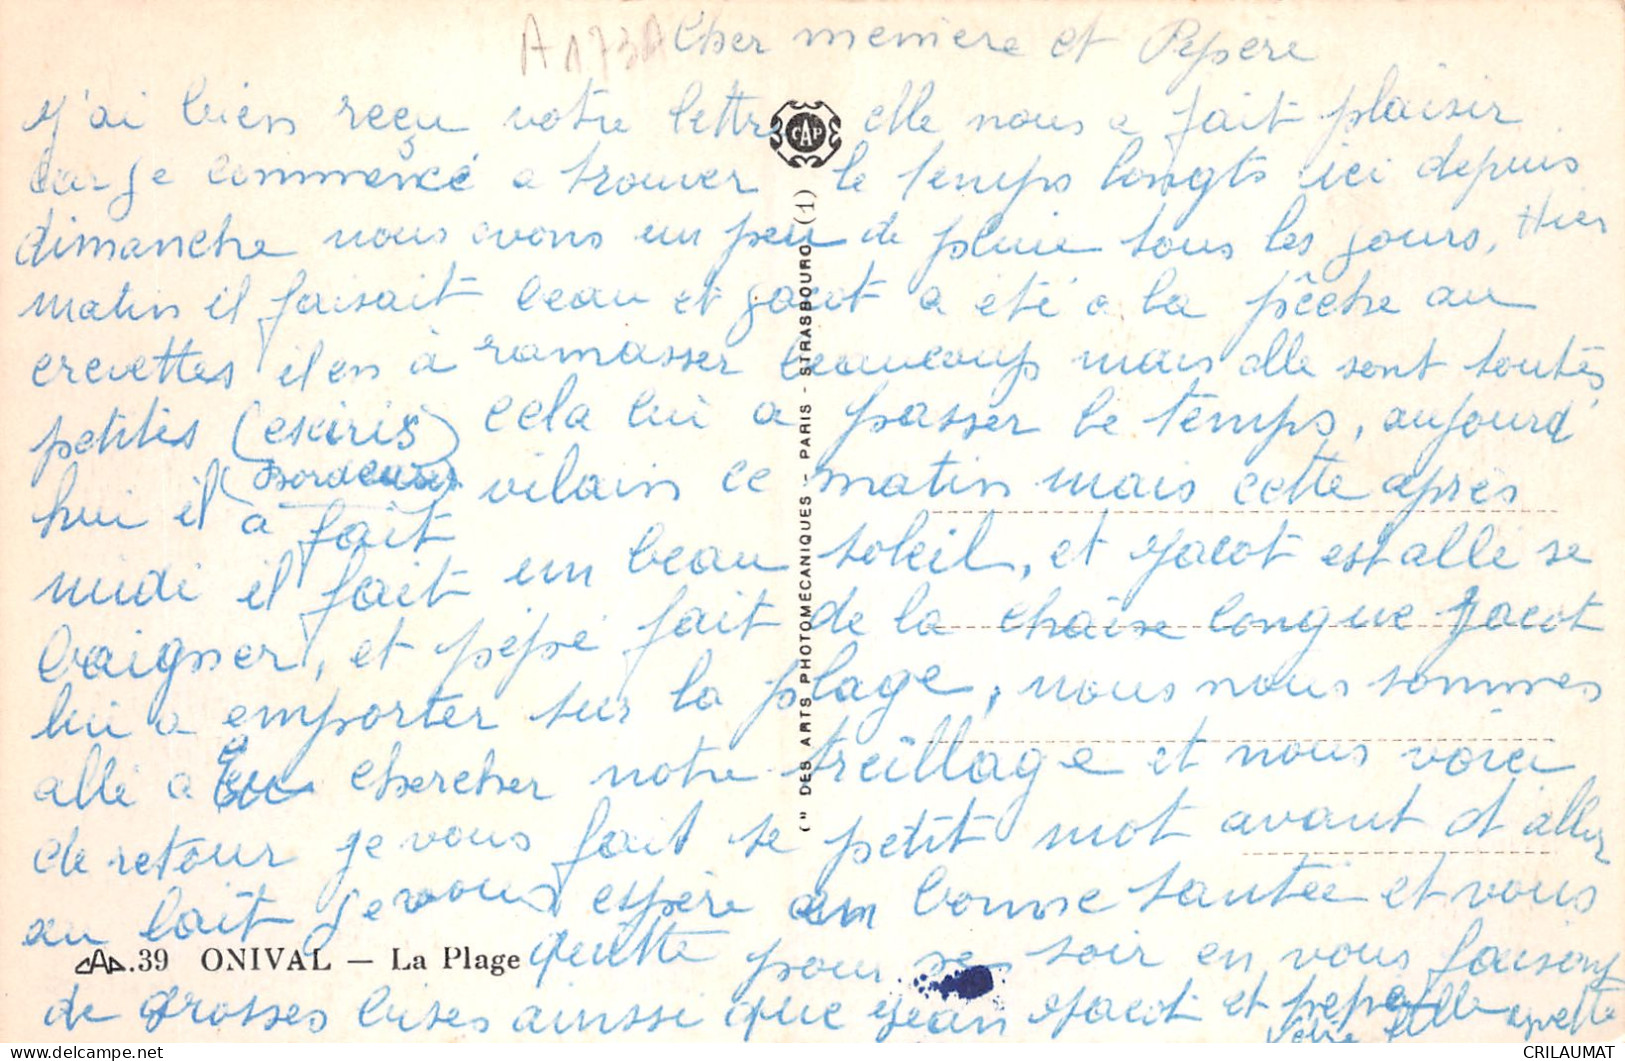 A173A Cher memere et Pepere
J'ai bien reçu votre lettre elle nous a fait plaisir
car je commencé a trouver le temps longts ici depuis
dimanche nous avons un peu de pluie tous les jours, Hier
matin il faisait beau et Jacot a été a la pêche au
crevettes il en à ramasser beaucoup mais elle sont toutes
petites (                ) cela lui a passer le temps, aujourd'
hui il a fait vilain ce matin mais cette après
midi il fait un beau soleil, et Jacot est allé se
baigner, et pépé fait de la chaise longue Jacot
lui a emporter sur la plage, nous nous sommes
allé a chercher notre treillage et nous voici
de retour je vous fait se petit mot avant d'aller
au lait je vous espère en bonne santée et vous
quitte pour se soir en vous faisons
de grosses bises ainsi que Jean Jacot et pepe
Votre fille
CAP
(" DES ARTS PHOTOMÉCANIQUES - PARIS - STRASBOURG (1)
CAP.39 ONIVAL — La Plage
CRILAUMAT